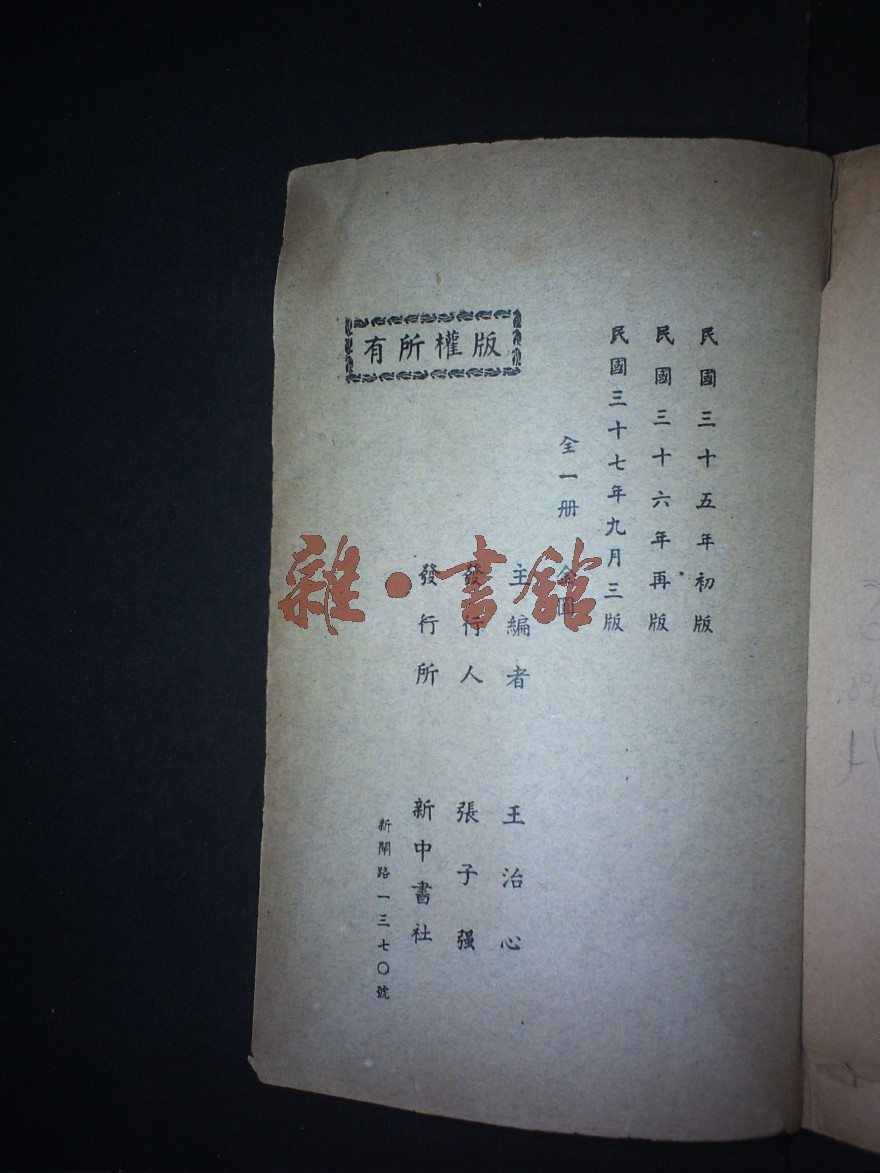 民國三十五年初版
民國三十六年再版
民國三十七年九月三版
全一册 金圓
主編者 王治心
發行人 張子强
發行所 新中書社
新閘路一三七〇號
版權所有
雜·書館